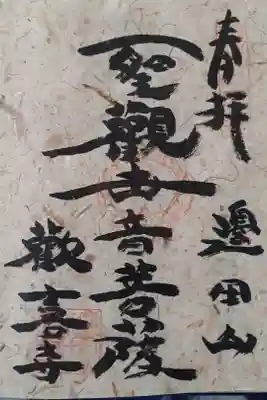 奉拝
邊田山
聖觀世音菩薩
歡喜寺